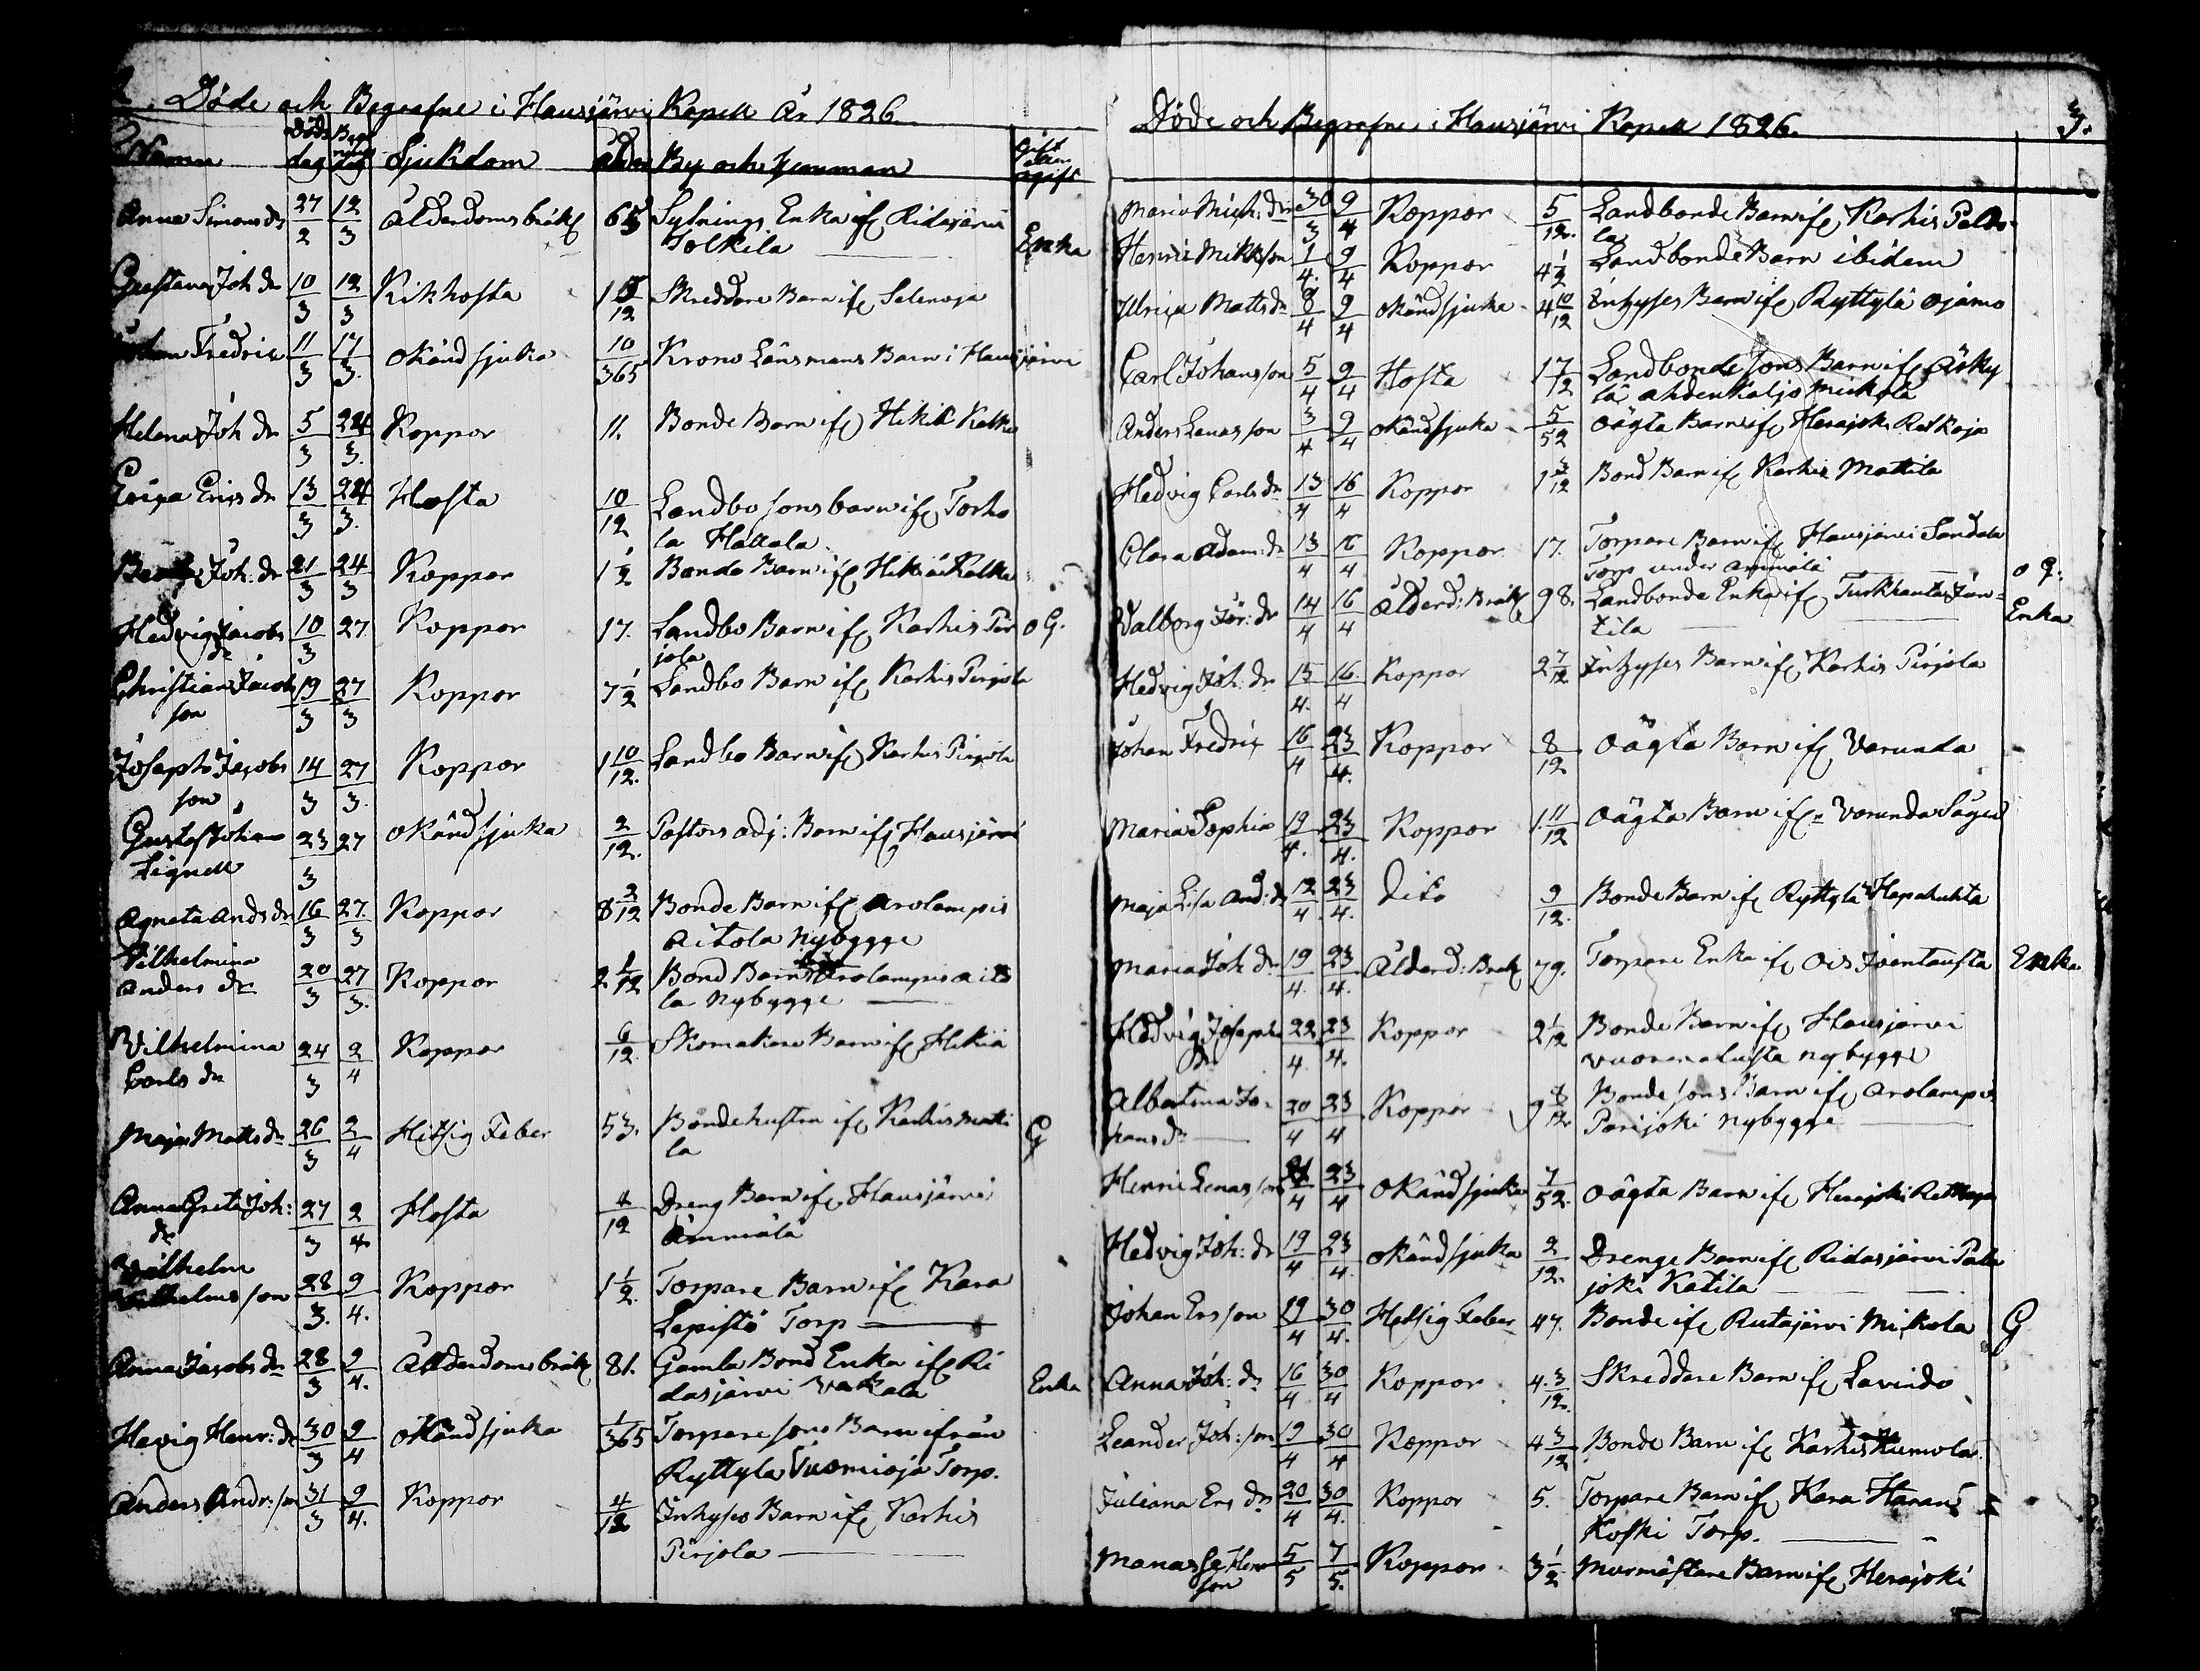 2. Döde och Begrafne i Hausjärvi Kapell År 1826.
Namn Döds dag Begrafn: dag Sjukdom Ålder By och Hemman Gift eller ogift
Anna Simonsdr 27/2 12/3 Ålderdomsbräkl 65 Sytnings Enka if Ridasjärvi
Tolkila Enka
Gustava Joh dr 10/3 12/3 Kikhosta 1 5/12 Skreddare Barn if Selenoja
Johan Fredric 11/3 17/3. okänd sjuka 10/365 Krono Länsmans Barn i Hausjärvi
Helena Joh dr 5/3 24/3. Koppor 11. Bonde Barn if Hikiä Kalke
Erica Erics dr 13/3 24/3. Hosta 10/12 Landbo sons barn if Torho
la Hattala
Joh: dr 21/3 24/3 Koppor 1 1/2 Bonde Barn if Hikiä Kalke
Hedvig Jacobs dr 10/3 27 Koppor 17. Landbo Barn if Karhis Pir o G.
jola
Christian Jacobs son 19/3 27/3 Koppor 7 1/2 Landbo Barn if Karhis Pirjola
Joseph Jacobs son 14/3 27/3. Koppor 1 10/12. Landbo Barn if Karhis Pirjola
Gustaf Johan Lignell 23/3 27 okänd sjuka 2/12. Pastors adj: Barn if Hausjärvi
Agneta Ands dr 16/3 27/3 Koppor 8 2/12 Bonde Barn if Arolampis
Aitola Nybygge
Vilhelmina Anders dr 20/3 27/3. Koppor 2 1/12 Bond Barn Arolampis Aito
la Nybygge
Vilhelmina Carls dr 24/3 2/4 Koppor 6/12. Skomakare Barn if Hikiä
Maja Matts dr 26/3 2/4 Hetsig Feber 53. Bondehustru if Karhis Matti G
la
Anna Greta Joh: dr 27/3 2/4 Hosta 4/12 Dreng Barn if Hausjärvi
Ämmälä
Vilhelm Vilhelms son 28/3. 9/4. Koppor 1 1/2. Torpare Barn if Kara
Lepistö Torp
Anna Jacobs dr 28/3 9/4. Ålderdoms bräkl 81. Gamla Bond Enka if Ri
dasjärvi Vakala Enka
Hevig Henr: dr 30/3 9/4 okänd sjuka 1/365 Torpare sons Barn ifrån
Ryttylä Vuomioja Torp.
Anders Andr: son 31/3 9/4. Koppor 4/12 Inhyses Barn if Karhis
Pirjola
Döde och Begrafne i Hausjärvi Kapell 1826. 3.
Maria Mich: dr 30/3 9/4 Koppor 5/12. Landbonde Barn if Karhis Palo
la
Henric Mikkson 1/4. 9/4 Koppor 4 1/2 Landbonde Barn ibidem
Ulrica Matts dr 8/4 9/4 okänd sjuka 4 10/12 Inhyses Barn if Ryttylä Ojamo
Carl Johans son 5/4 9/4 Hosta 1 7/12 Landbonde sons Barn if Äsky
lä Ahdenkaljo Mickola
Anders Lenas son 3/4 9/4 okänd sjuka 5/52 oägta Barn if Herajoki Retkoja
Hedvig Carls dr 13/4 16/4 Koppor 1 3/12 Bond Barn if Karhis Mattila
Clara Adam: dr 13/4 16/4 Koppor 17. Torpare Barn if Hausjärvi Sandala
Torp under Ämmälä o G.
Valborg Jör: dr 14/4 16/4 Ålderd: Bräkl 98. Landbonde Enka if Turkhauta Jun
tila Enka
Hedvig Joh: dr 15/4. 16/4 Koppor 2 7/12 Inhyses Barn if Karhis Pirjola
Johan Fredric 16/4 23/4. Koppor 8/12 oägta Barn if Varunda
Maria Sophia 19/4. 23/4. Koppor 1 11/12 oägta Barn if Varunda Såged
Maja Lisa And: dr 12/4 23/4. dito 9/12. Bonde Barn if Ryttylä Hapahuhta
Maria Joh dr 19/4. 23/4. Ålderd: Bräkl 79. Torpare Enka if Ois Joentausta Enka
Hedvig Josephs dr 22/4. 23/4. Koppor 2 1/12 Bonde Barn if Hausjärvi
Vuorenalusta Nybygge
Albertina Jo
hans dr 20/4 23/4 Koppor 9 8/12 Bonde sons Barn if Arolampi
Parijoki Nybygge
Henric Lenas son 21/4 23/4 okänd sjuka 7/52. oägta Barn if Herajoki Retkoja
Hedvig Joh: dr 19/4 23/4. okänd sjuka 2/12. Drenge Barn if Ridasjärvi Palo
joki Katila
Johan Ers son 19/4 30/4. Hetsig Feber 47. Bonde if Rutajärvi Mickola G
Anna Joh: dr 16/4 30/4 Koppor 4 3/12. Skreddare Barn if Lavindo
Leander Joh: son 19/4 30/4 Koppor 4 3/12 Bonde Barn if Karhis Kumola
Juliana Ers dr 20/4 30/4. Koppor 5. Torpare Barn if Kara Haran
Koski Torp.
Manasse Henr son 5/5 7/5. Koppor 3 1/2 Murmästare Barn if Herajoki